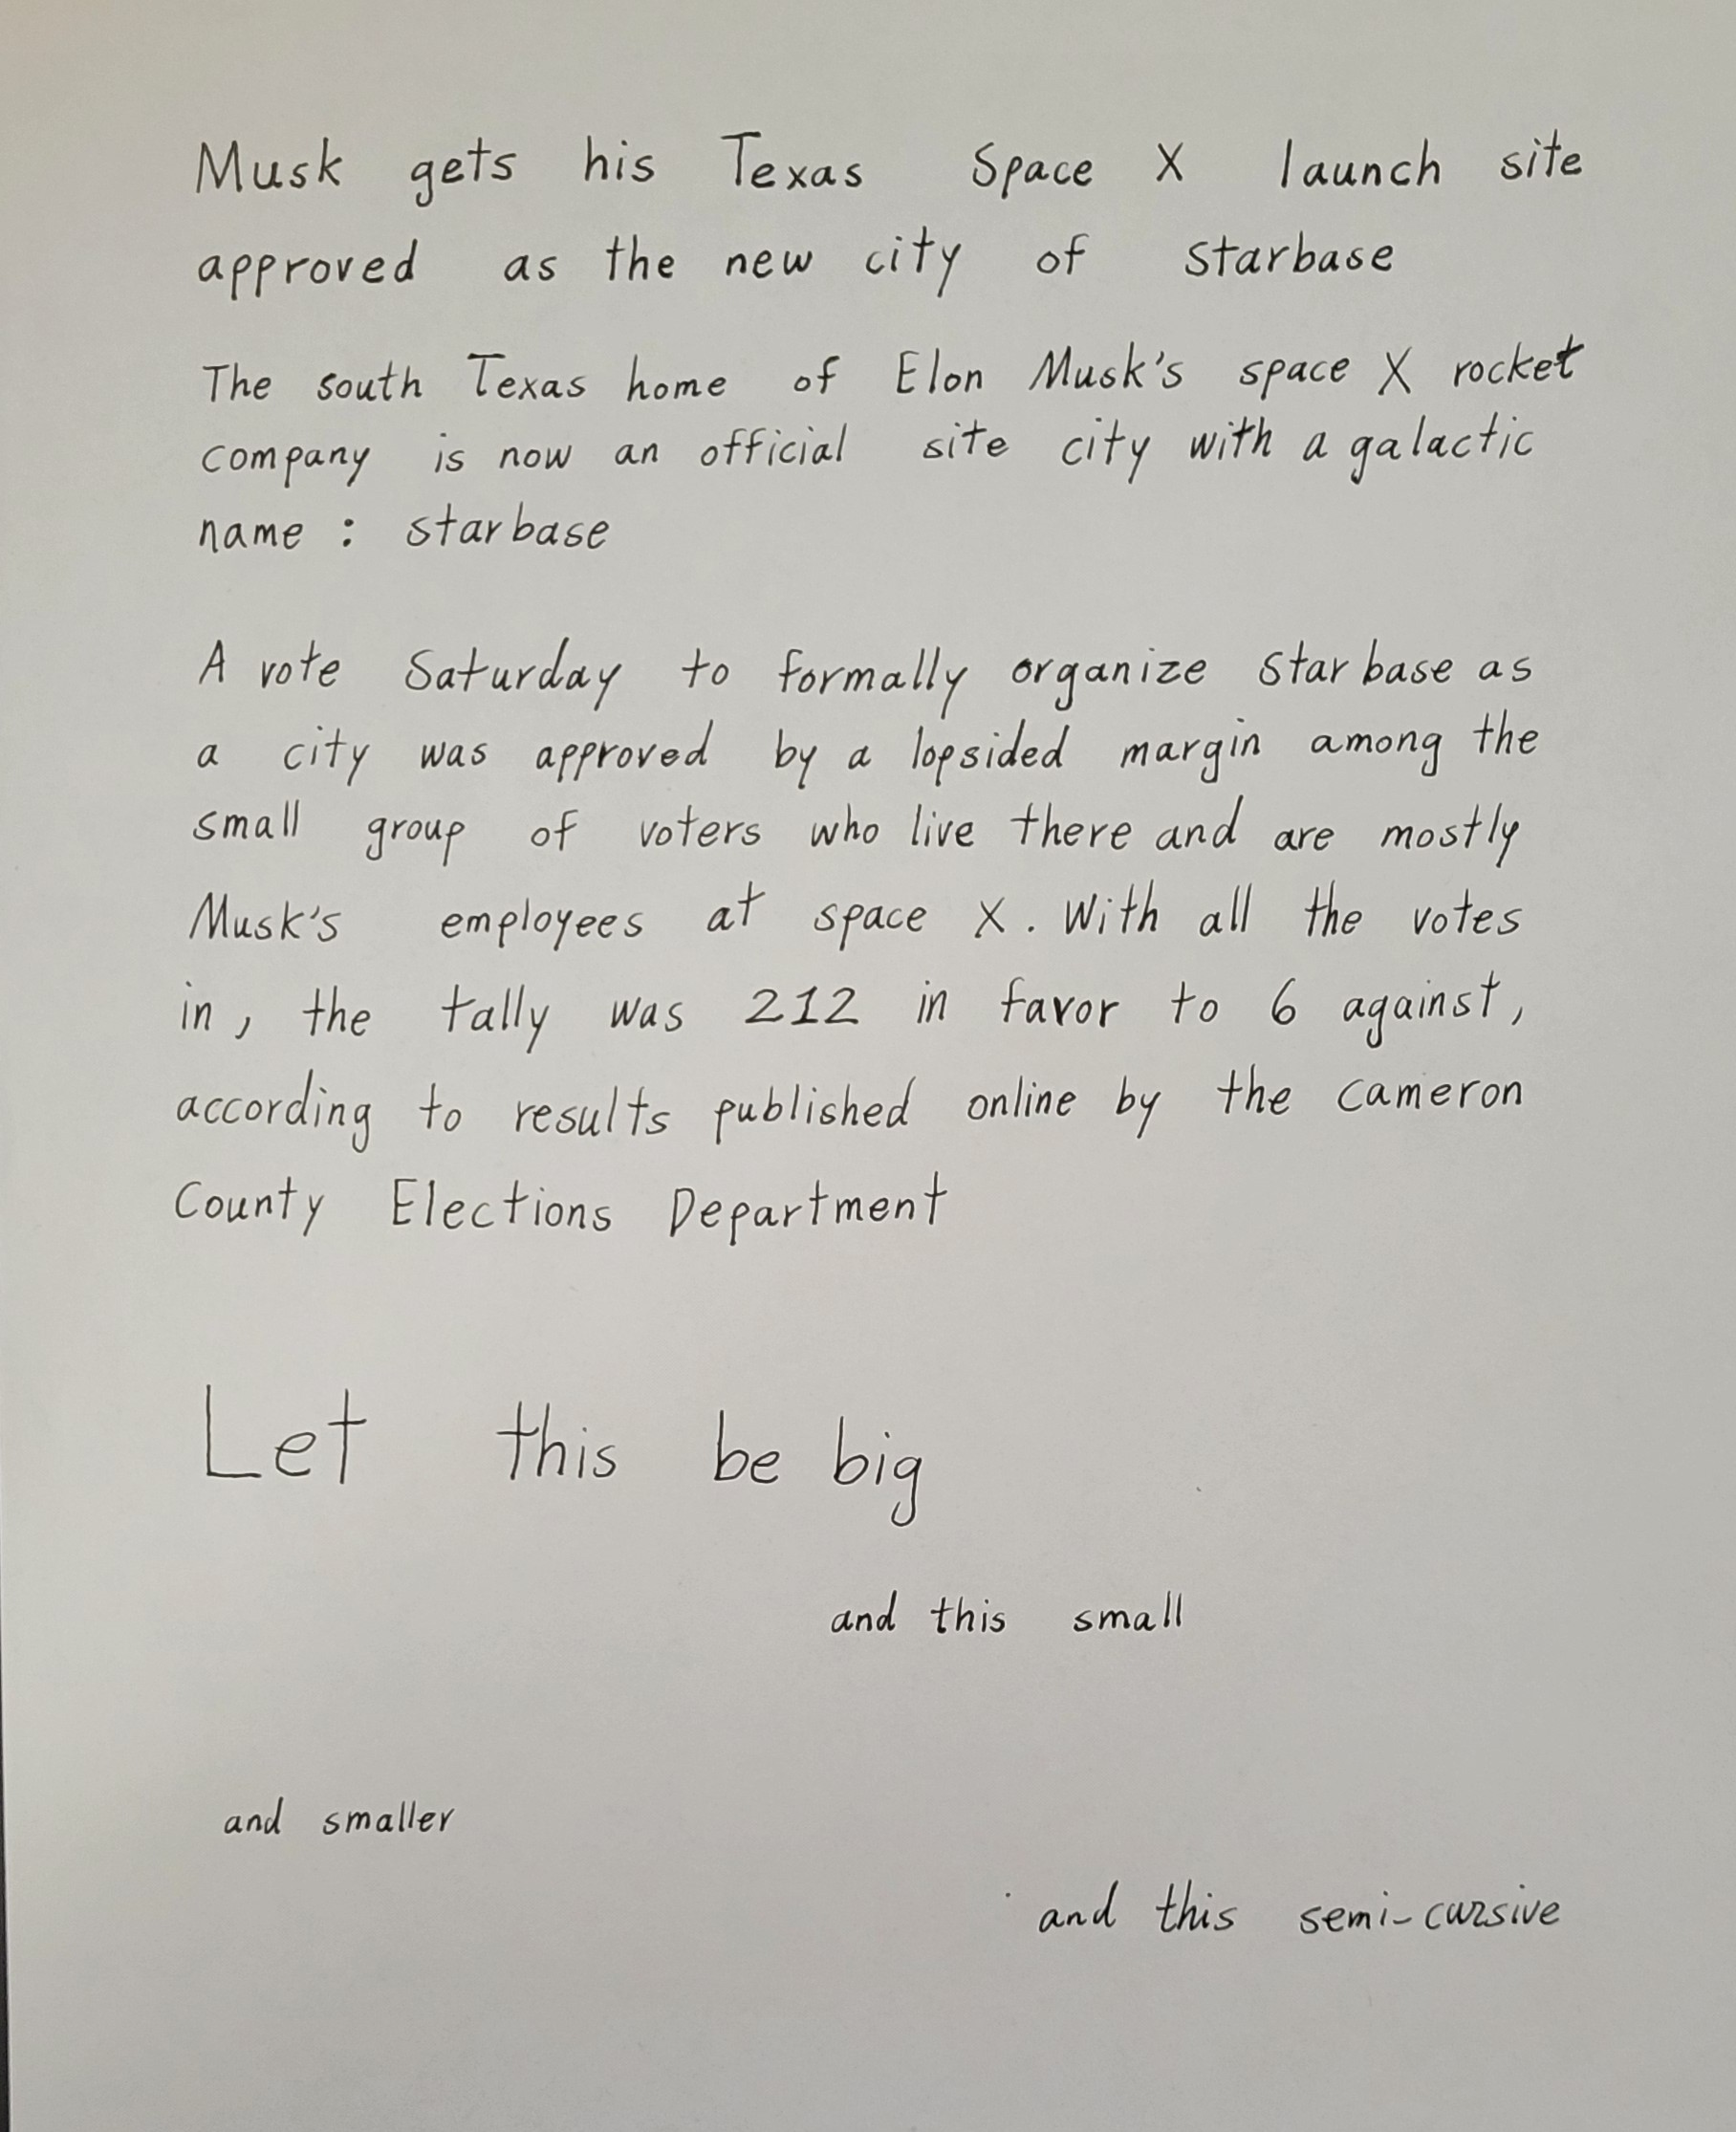 Musk gets his Texas Space X launch site
approved as the new city of starbase
The south Texas home of Elon Musk's space X rocket
company is now an official site city with a galactic
name : starbase
A vote Saturday to formally organize starbase as
a city was approved by a lopsided margin among the
small group of voters who live there and are mostly
Musk's employees at space X. With all the votes
in, the tally was 212 in favor to 6 against,
according to results published online by the cameron
County Elections Department
Let this be big
and this small
and smaller
and this semi-cursive